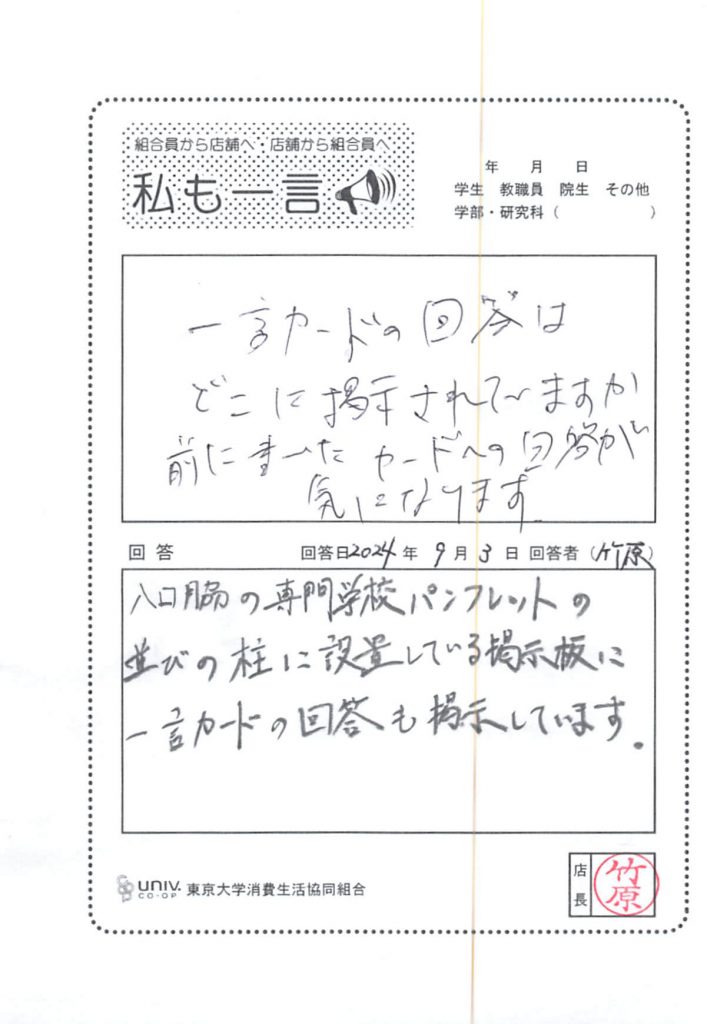 組合員から店舗へ・店舗から組合員へ
私も一言
年 月 日
学生 教職員 院生 その他
学部・研究科（ ）
一言カードの回答は
どこに掲示されていますか
前に書いたカードへの回答が
気になります
回答 回答日2024年9月3日 回答者（竹原）
入口脇の専門学校パンフレットの
並びの柱に設置している掲示板に
一言カードの回答も掲示しています。
UNIV. CO-OP 東京大学消費生活協同組合
店長 竹原